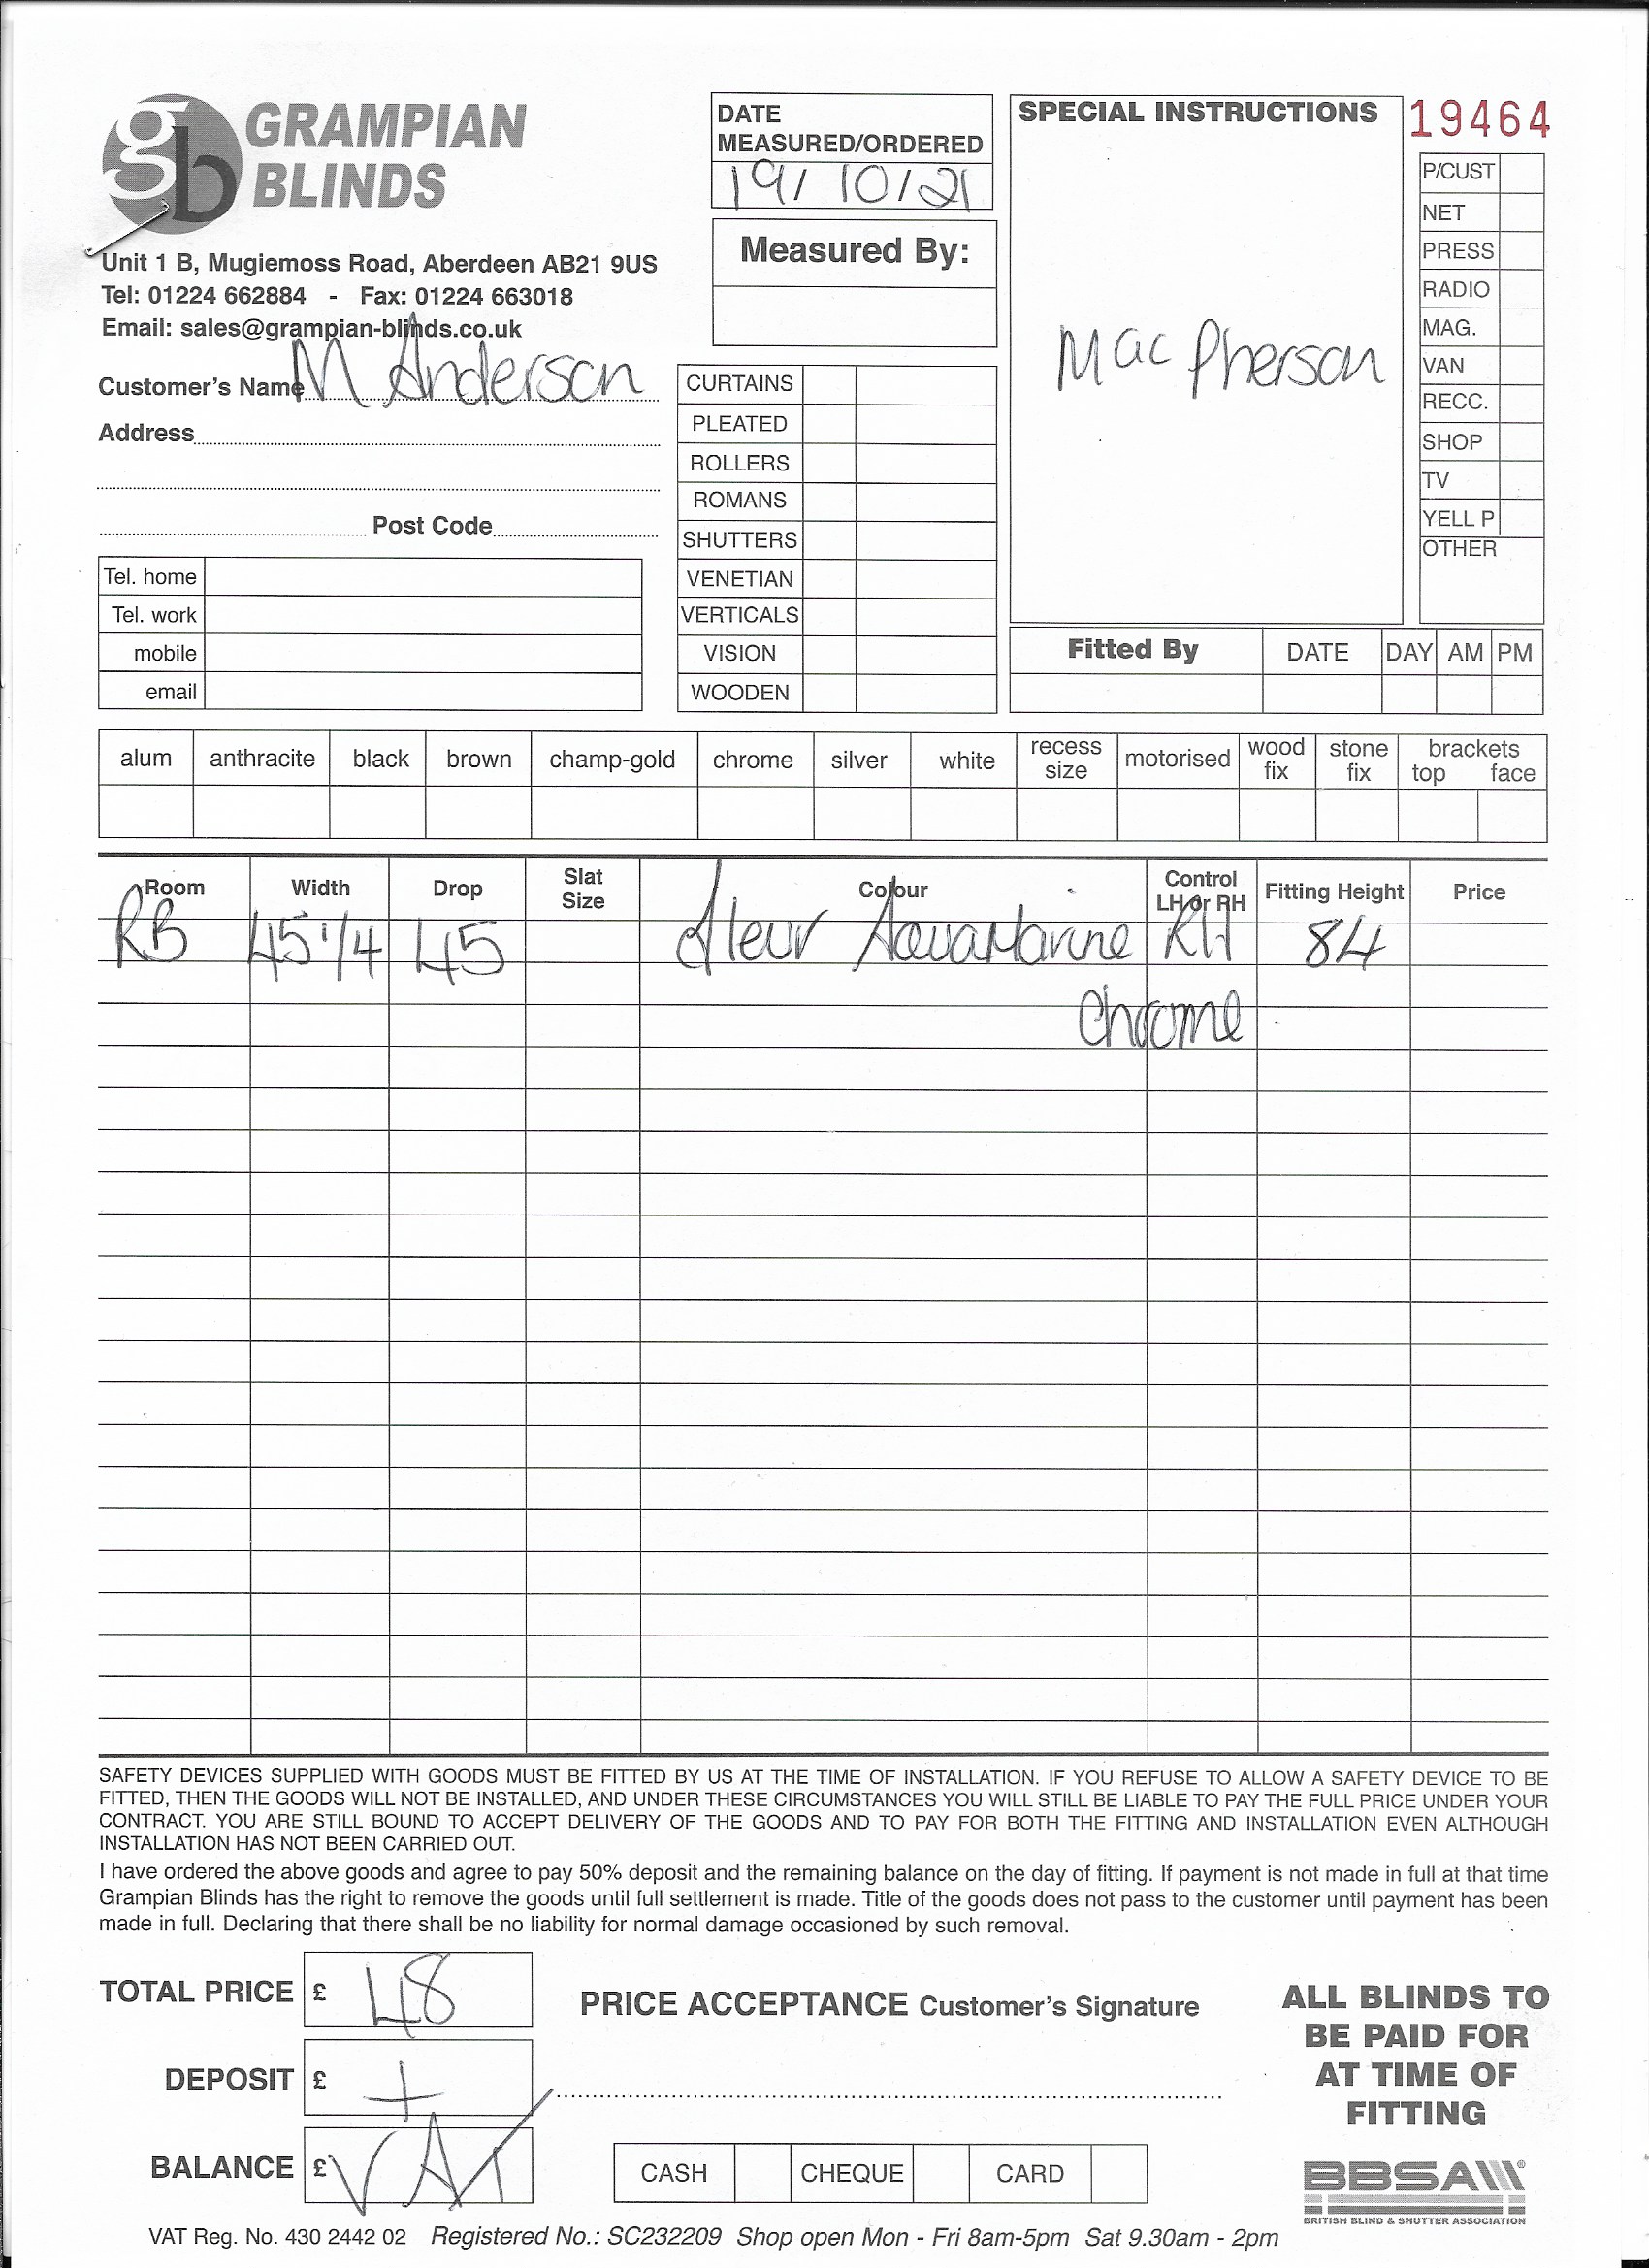 gb GRAMPIAN BLINDS
Unit 1 B, Mugiemoss Road, Aberdeen AB21 9US
Tel: 01224 662884 - Fax: 01224 663018
Email: sales@grampian-blinds.co.uk
Customer's Name M Anderson
Address
Post Code
Tel. home
Tel. work
mobile
email
DATE
MEASURED/ORDERED
19/10/21
Measured By:
CURTAINS
PLEATED
ROLLERS
ROMANS
SHUTTERS
VENETIAN
VERTICALS
VISION
WOODEN
SPECIAL INSTRUCTIONS
MacPherson
19464
P/CUST
NET
PRESS
RADIO
MAG.
VAN
RECC.
SHOP
TV
YELL P
OTHER
Fitted By DATE DAY AM PM
alum anthracite black brown champ-gold chrome silver white recess size motorised wood fix stone fix brackets top face
Room Width Drop Slat Size Colour Control LH or RH Fitting Height Price
RB 45 1/4 45 Fleur AquaMarine RH 84
Chrome
SAFETY DEVICES SUPPLIED WITH GOODS MUST BE FITTED BY US AT THE TIME OF INSTALLATION. IF YOU REFUSE TO ALLOW A SAFETY DEVICE TO BE
FITTED, THEN THE GOODS WILL NOT BE INSTALLED, AND UNDER THESE CIRCUMSTANCES YOU WILL STILL BE LIABLE TO PAY THE FULL PRICE UNDER YOUR
CONTRACT. YOU ARE STILL BOUND TO ACCEPT DELIVERY OF THE GOODS AND TO PAY FOR BOTH THE FITTING AND INSTALLATION EVEN ALTHOUGH
INSTALLATION HAS NOT BEEN CARRIED OUT.
I have ordered the above goods and agree to pay 50% deposit and the remaining balance on the day of fitting. If payment is not made in full at that time
Grampian Blinds has the right to remove the goods until full settlement is made. Title of the goods does not pass to the customer until payment has been
made in full. Declaring that there shall be no liability for normal damage occasioned by such removal.
TOTAL PRICE £ 48
DEPOSIT £ +
BALANCE £ VAT
PRICE ACCEPTANCE Customer's Signature
CASH CHEQUE CARD
ALL BLINDS TO
BE PAID FOR
AT TIME OF
FITTING
BBSA
BRITISH BLIND & SHUTTER ASSOCIATION
VAT Reg. No. 430 2442 02 Registered No.: SC232209 Shop open Mon - Fri 8am-5pm Sat 9.30am - 2pm